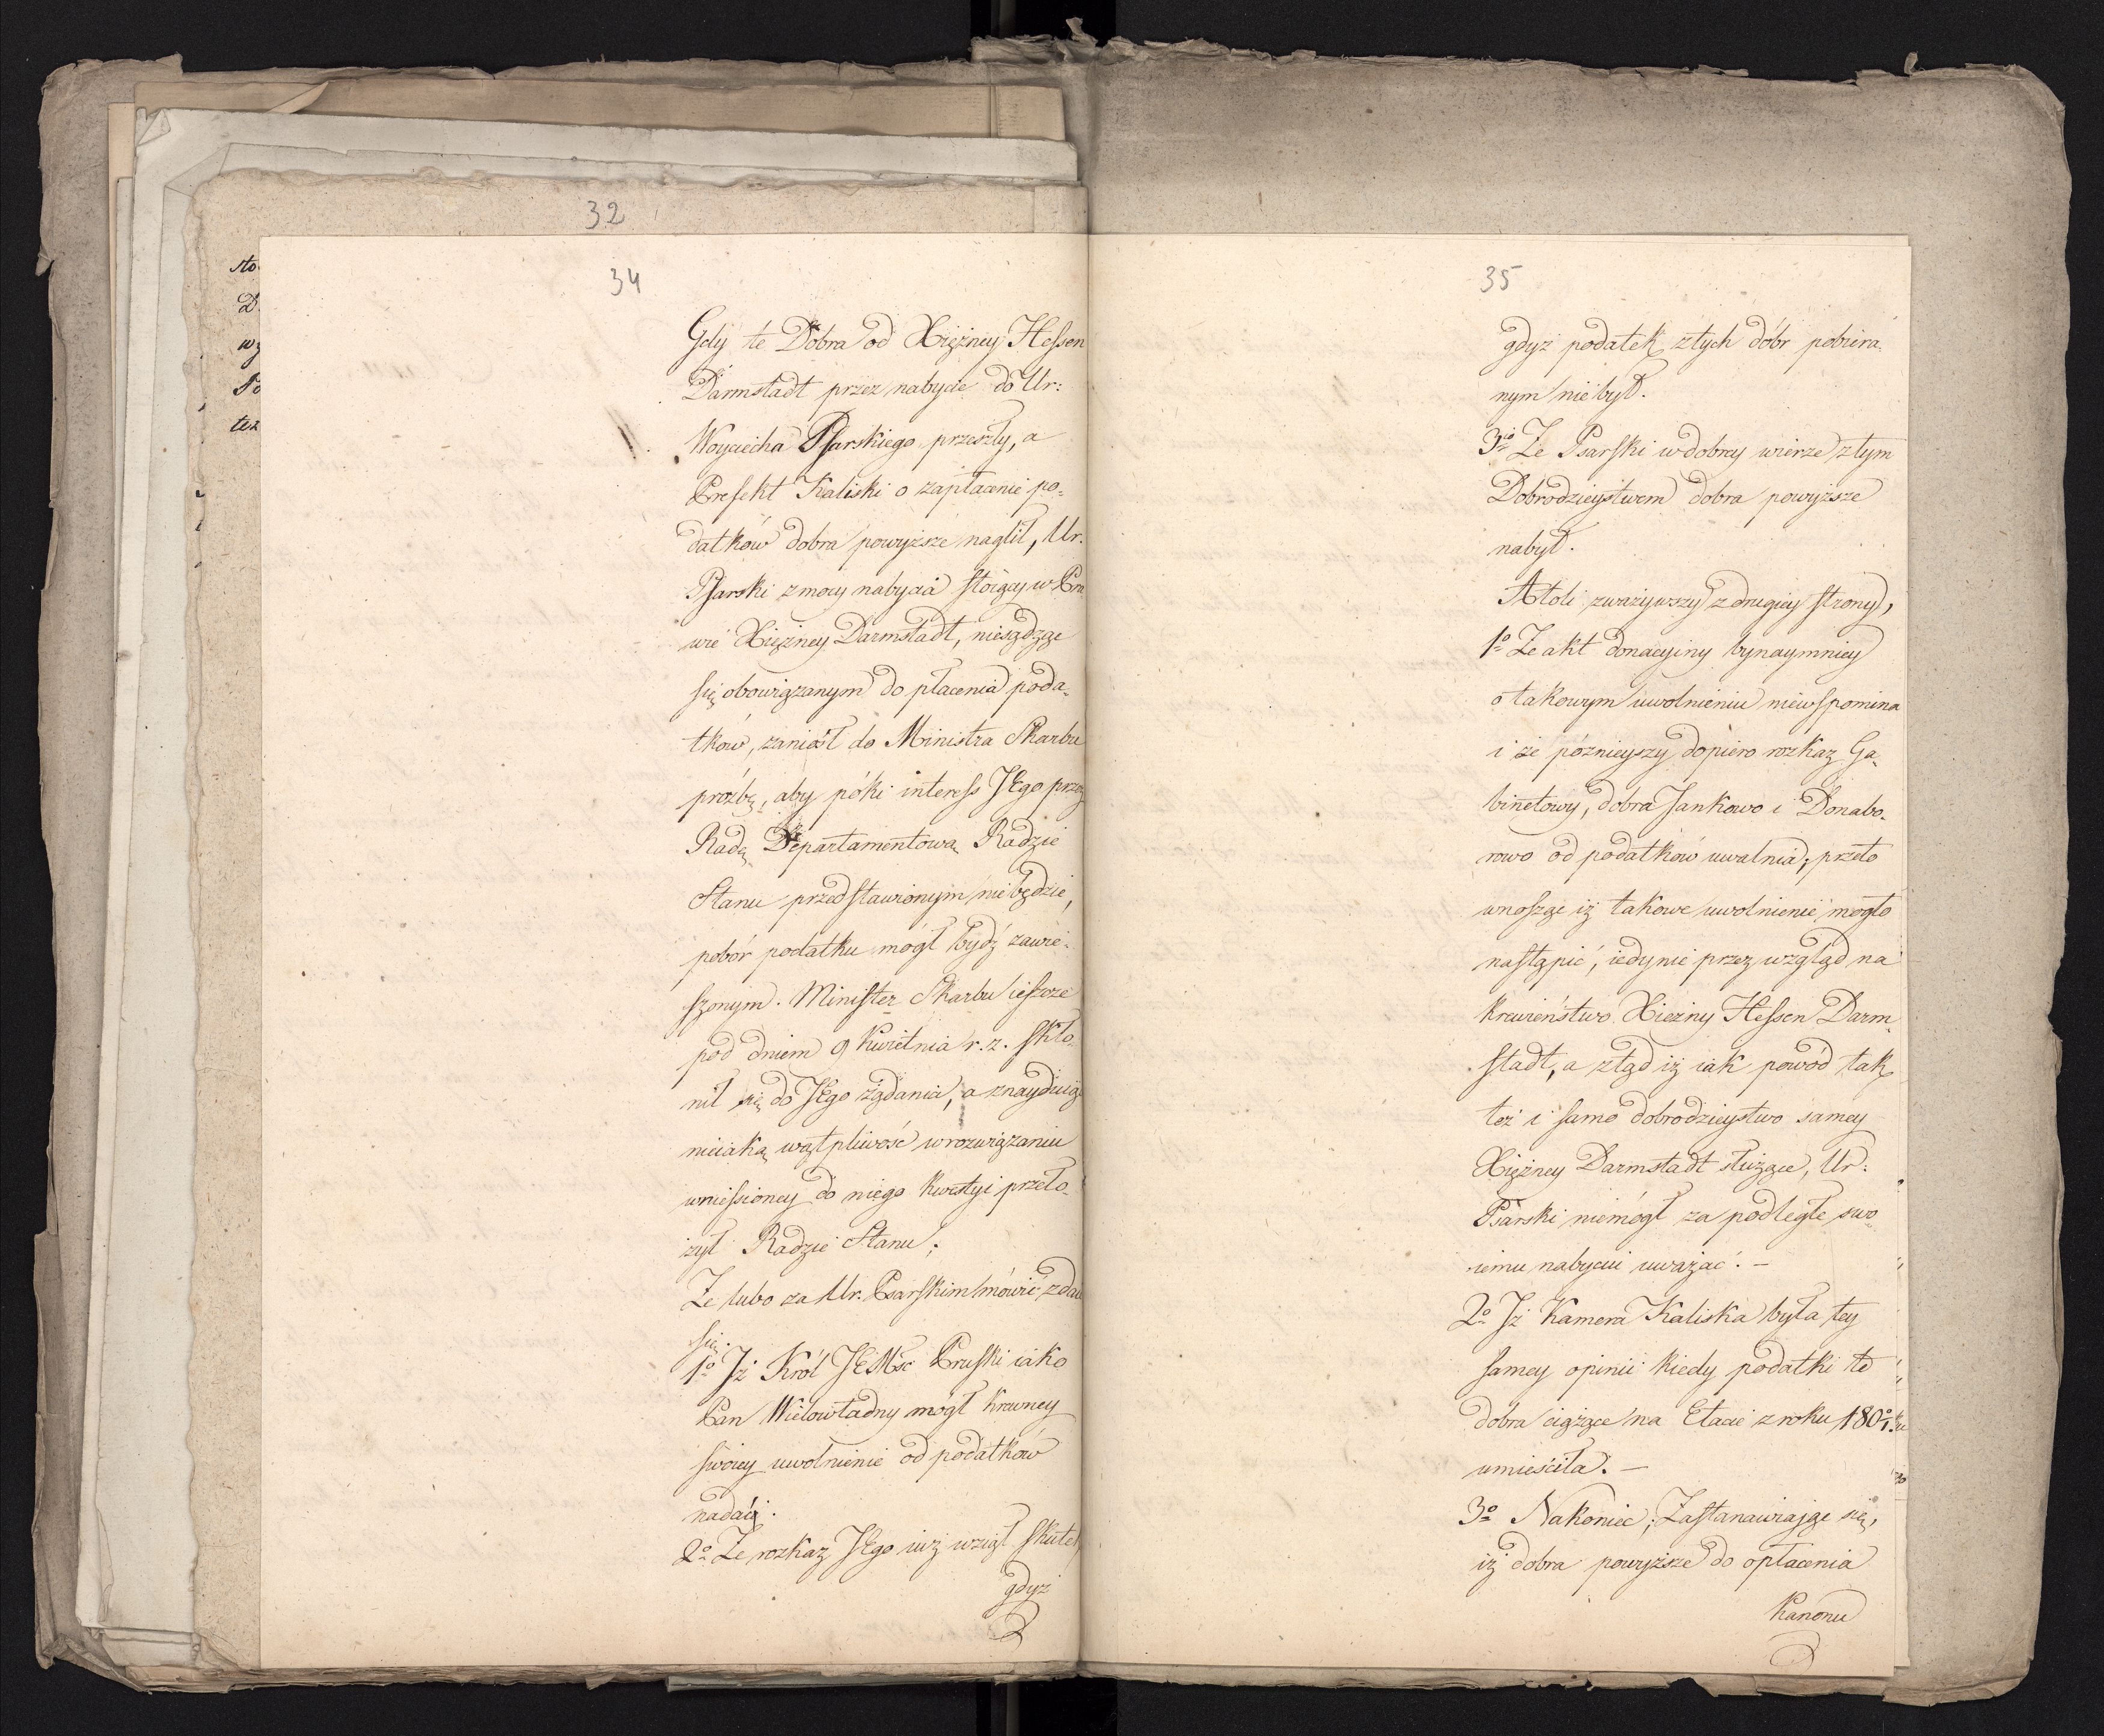 32
34
Gdy te Dobra od Xiężney Hessen
Darmstadt przez nabycie do Ur:
Woyciecha Psarskiego przeszły, a
Prefekt Kaliski o zapłacenie po-
datków dobra powyższe naglił, Ur.
Psarski z mocy nabycia stoiący w Pra
wie Xiężney Darmstadt, niesądząc
się obowiązanym do płacenia poda-
tków, zaniósł do Ministra Skarbu
proźbę, aby póki interess JEgo przez
Radę Departamentową Radzie
Stanu przedstawionym nie będzie,
pobór podatku mógł bydź zawie-
szonym. Minister Skarbu ieszcze
pod dniem 9 Kwietnia r. z. skło-
nił się do JEgo żądania, a znayduiąc
nieiaką wątpliwość w rozwiązaniu
wniesioney do niego kwestyi przeło-
żył Radzie Stanu;
Że lubo za Ur. Psarskim mówić zdaie
się.
1o Jż Król JEMść Pruski iako
Pan Wielowładny mógł krewney
swoiey uwolnienie od podatków
nadać.
2o Że rozkaz JEgo iuż wziął skutek
gdyż
sto
D
wy
Po
tez
35
gdyż podatek z tych dóbr pobiera-
nym nie był.
3io Że Psarski w dobrey wierze z tym
Dobrodzieystwem dobra powyższe
nabył.
Atoli zważywszy z drugiey strony,
1o Że akt donacyiny bynaymniey
o takowym uwolnieniu niewspomina
i że poznieyszy dopiero rozkaz Ga-
binetowy, dobra Jankowo i Donabo-
rowo od podatków uwalnia, przeto
wnosząc iż takowe uwolnienie mogło
nastąpić, iedynie przez wzgląd na
krewieństwo Xiężny Hessen Darm-
stadt, a ztąd iż iak powód tak
też i samo dobrodzieystwo samey
Xiężney Darmstadt służące, Ur:
Psarski niemógł za podległe swo-
iemu nabyciu uważać. –
2o Jż Kamera Kaliska była tey
samey opinii kiedy podatki te
dobra ciążące na Etacie z roku 180
umieściła. –
3o Nakoniec, Zastanawiając się,
iż dobra powyższe do opłacenia
Kanonu